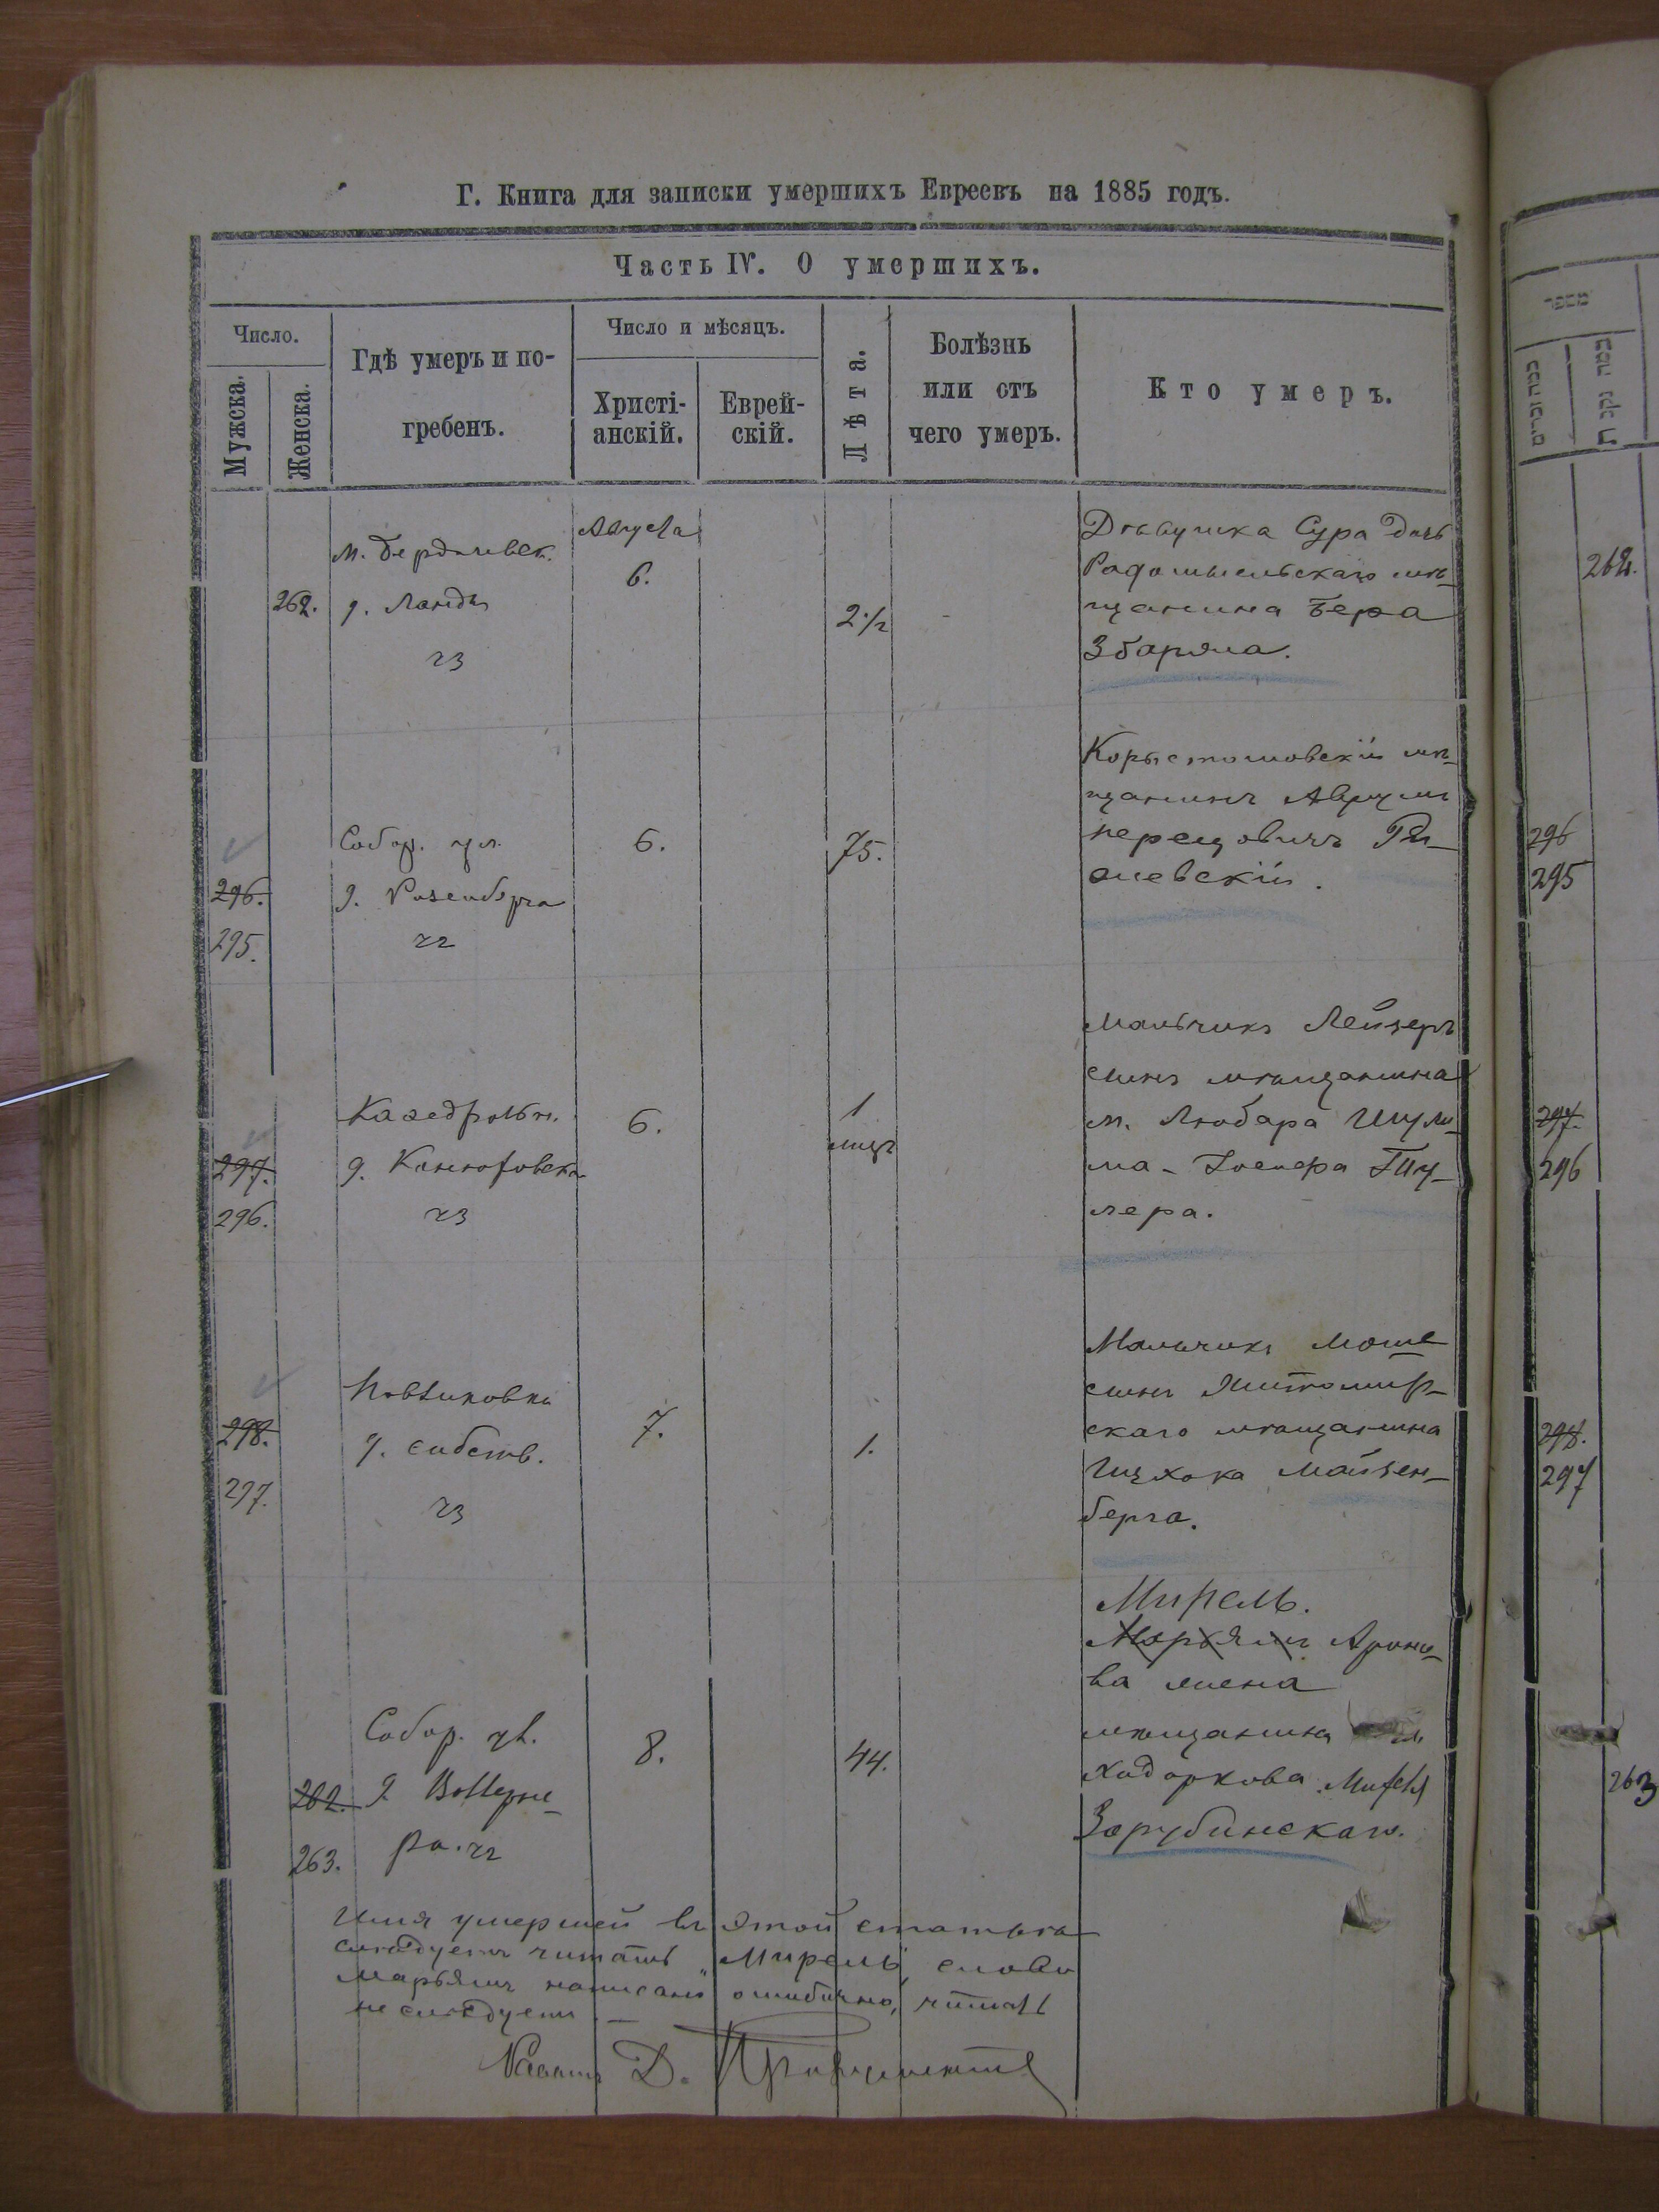 Г. Книга для записки умершихъ Евреевъ на 1885 годъ.
Часть IV. О умершихъ.
Число.
Мужска.
Женска.
Гдѣ умеръ и по-
гребенъ.
Число и мѣсяцъ.
Христі-
анскій.
Еврей-
скій.
Лѣта.
Болѣзнь
или отъ
чего умеръ.
Кто умеръ.
262.
м. Бердичевск.
д. Ланды
чз
Августа
6.
2 1/2
Дѣвушка Сура дочь
Радомысльскаго мѣ-
щанина Бера
Збаряжа.
296.
295.
Собор. ул.
д. Розенберга
6.
75.
Коростышовскій мѣ-
щанинъ Аврумъ
Перецовичъ
297.
296.
Каѳедральн.
д.
чз
6.
1
мѣсц
Мальчикъ Лейзеръ
сынъ мѣщанина
м. Любара Шулы-
ма-Іосифа
лера.
298.
297.
д. собств.
чз
7.
1.
Мальчикъ Моше
сынъ Житомир-
скаго мѣщанина
Ицхока Майзен-
берга.
262.
263.
Собор. ул.
д.
ра.
8.
44.
Мирель.
Марьямъ Ароно-
ва жена
мѣщанина
Ходоркова
Зарубинскаго.
Имя умершей въ этой статьѣ
слѣдуетъ читать „Мирель“, слово
„Марьямъ“ написано ошибочно, читать
не слѣдуетъ. —
Раввинъ Д.
262.
296
295
297.
296
298.
297
263